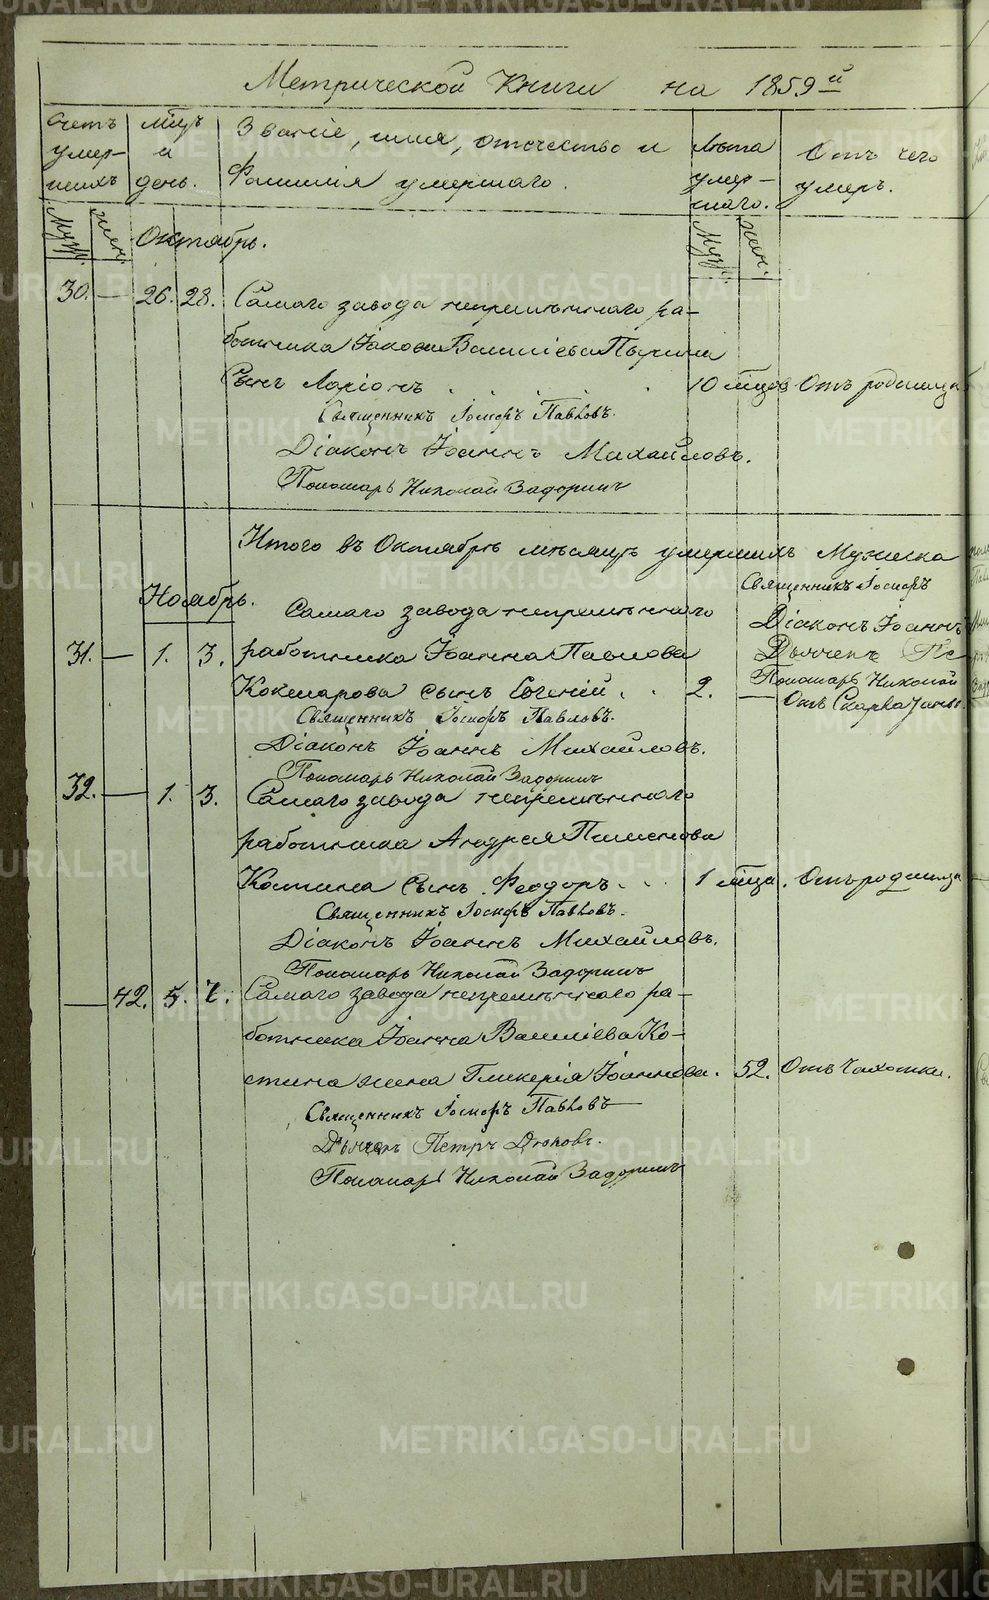 Метрической Книги на 1859й
Счетъ умершихъ
мцъ и день.
Званіе, имя, отчество и
Фамилія умершаго.
Лѣта умершаго.
Отъ чего умеръ.
Муж.
жен.
Октябрь.
Муж.
жен.
30. — 26. 28. Самаго завода непремѣннаго ра-
ботника Іакова Василіева
Сынъ Ларіонъ . . . . 10 мцов Отъ родимца
Священникъ Іосифъ Павловъ.
Діаконъ Іоаннъ Михайловъ.
Пономарь Николай Задоринъ
Итого въ Октябрѣ мѣсяцѣ умершихъ Мужеска
Священникъ Іосифъ
Ноябрь.
Самаго завода непремѣннаго
Діаконъ Іоаннъ
31. — 1. 3. работника Іоанна Павлова
Дьячекъ Пе
Кокшарова сынъ Евгеній . . 2. —
Пономарь Николай
Отъ
Священникъ Іосифъ Павловъ.
Діаконъ Іоаннъ Михайловъ.
Пономарь Николай Задоринъ
32. — 1. 3. Самаго завода непремѣннаго
работника Андрея Пименова
Костина сынъ Феодоръ . . . 1 мца. Отъ родимца
Священникъ Іосифъ Павловъ.
Діаконъ Іоаннъ Михайловъ.
Пономарь Николай Задоринъ
— 42. 5. 7. Самаго завода непремѣннаго ра-
ботника Іоанна Василіева Ко-
стина жена Гликерія Іоаннова. 52. Отъ Чахотки.
Священникъ Іосифъ Павловъ
Дьячекъ Петръ
Пономарь Николай Задоринъ
METRIKI.GASO-URAL.RU